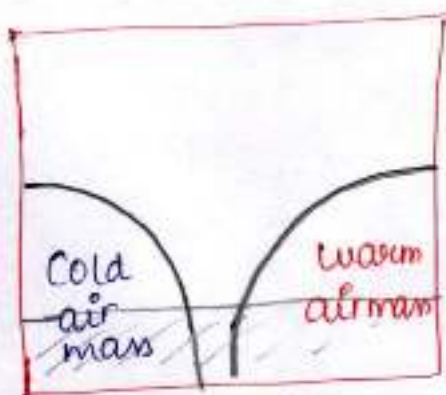 Cold
air
mass
warm
airmass